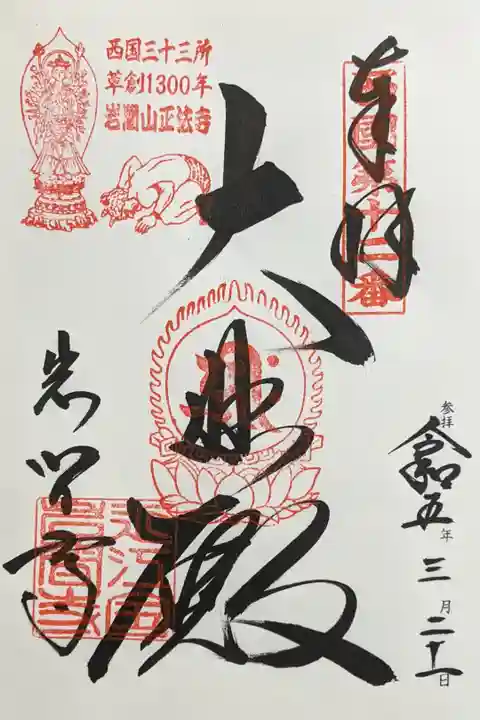 奉拝
西國第十二番
参拝
令和五年三月二十一日
大悲殿
西国三十三所
草創1300年
岩間山正法寺
岩間寺
近江国
岩間寺